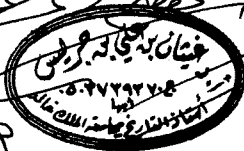 غيثان بن علي بن جريس
ج ٠٥٠٣٧٢٩٢٧
أبها
أستاذ التاريخ بجامعة الملك خالد